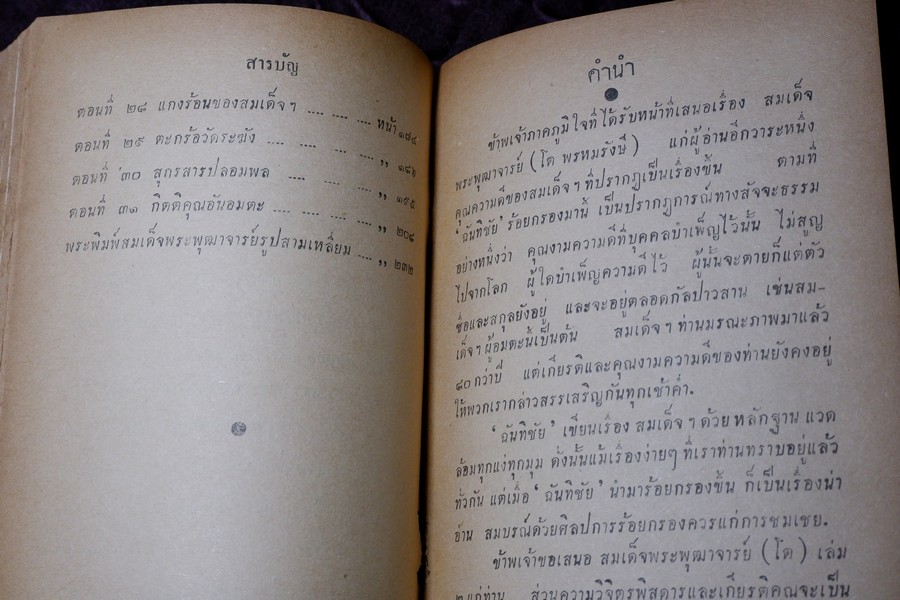 สารบัญ
ตอนที่ ๒๘ แกงร้อนของสมเด็จฯ .... .... .... หน้า ๑๗๔
ตอนที่ ๒๙ ตะกร้อวัดระฆัง .... .... .... ,, ๑๘๖
ตอนที่ ๓๐ สุกรสารปลอมพล .... .... .... ,, ๑๙๕
ตอนที่ ๓๑ กิตติคุณอันอมตะ .... .... .... ,, ๒๐๘
พระพิมพ์สมเด็จพระพุฒาจารย์รูปสามเหลี่ยม .... ,, ๒๓๒
คำนำ
ข้าพเจ้าภาคภูมิใจที่ได้รับหน้าที่เสนอเรื่อง สมเด็จ
พระพุฒาจารย์ (โต พรหมรังษี) แก่ผู้อ่านอีกวาระหนึ่ง
คุณความดีของสมเด็จฯ ที่ปรากฏเป็นเรื่องขึ้น ตามที่
‘ฉันทิชัย’ ร้อยกรองมานี้ เป็นปรากฏการณ์ทางสัจจะธรรม
อย่างหนึ่งว่า คุณงามความดีที่บุคคลบำเพ็ญไว้นั้น ไม่สูญ
ไปจากโลก ผู้ใดบำเพ็ญความดีไว้ ผู้นั้นจะตายก็แต่ตัว
ชื่อและสกุลยังอยู่ และจะอยู่ตลอดกัลปาวสาน เช่นสม-
เด็จฯ ผู้อมตะนี้เป็นต้น สมเด็จฯ ท่านมรณะภาพมาแล้ว
๘๐ กว่าปี แต่เกียรติและคุณงามความดีของท่านยังคงอยู่
ให้พวกเรากล่าวสรรเสริญกันทุกเช้าค่ำ.
‘ฉันทิชัย’ เขียนเรื่อง สมเด็จฯ ด้วย หลักฐาน แวด
ล้อมทุกแง่ทุกมุม ดังนั้นแม้เรื่องง่ายๆ ที่เราท่านทราบอยู่แล้ว
ทั่วกัน แต่เมื่อ ‘ฉันทิชัย’ นำมาร้อยกรองขึ้น ก็เป็นเรื่องน่า
อ่าน สมบรณ์ด้วยศิลปการร้อยกรองควรแก่การชมเชย.
ข้าพเจ้าขอเสนอ สมเด็จพระพุฒาจารย์ (โต) เล่ม
๒ แก่ท่าน ส่วนความวิจิตรพิสดารและเกียรติคุณจะเป็น